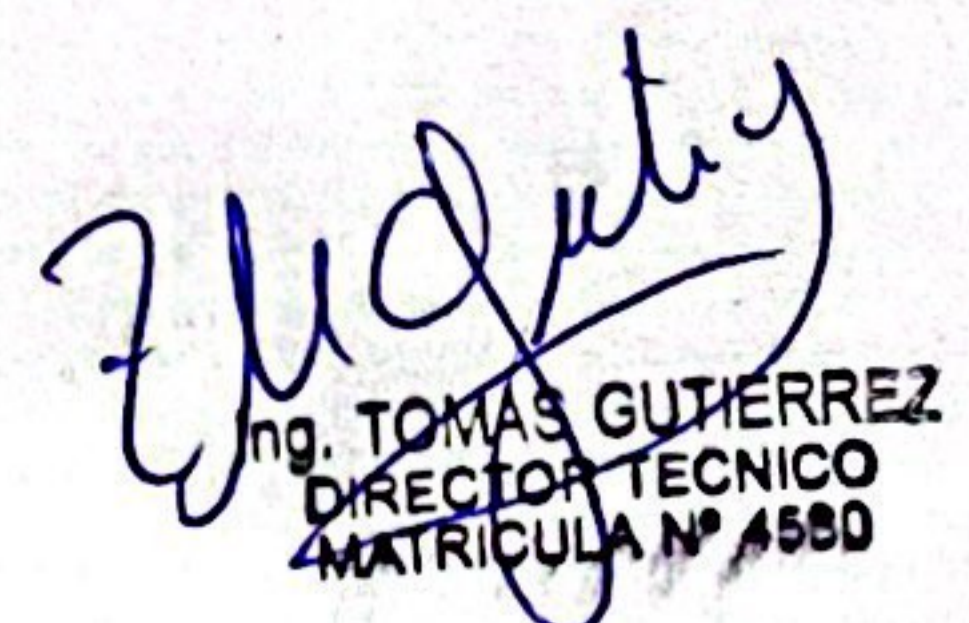 Ing. TOMAS GUTIERREZ
DIRECTOR TECNICO
MATRICULA Nº 4580